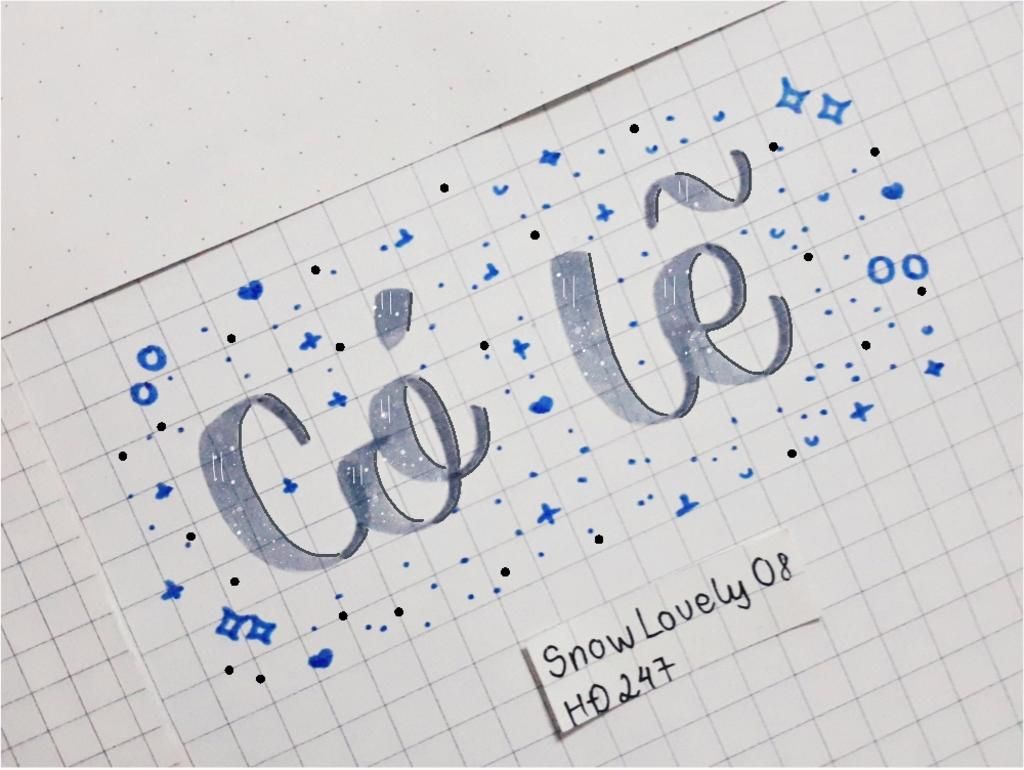 Có lẽ
SnowLovely08
HĐ247